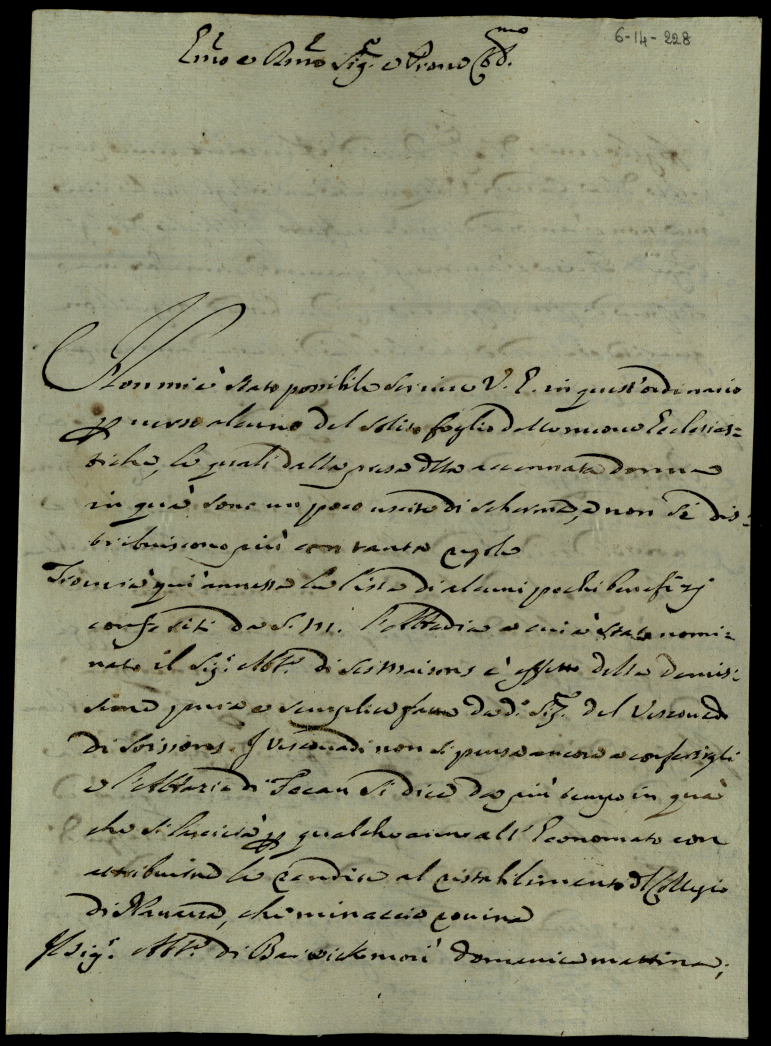 6-14-228
Emo e Rmo Sig.r e Prone Col.mo
Non mi è stato possibile scrivere V. E. in quest'ordinario
verso alcuno del solito foglio delle nuove Ecclesias=
tiche, le quali dalla presa della accennata donna
in quà sono un poco uscite di scherma, e non si dis=
tribuiscono più con tanta regola
Troverà quì annessa la lista di alcuni pochi benefizj
conferiti da S. M. l'Abbadia a cui è stato nomi=
nato il Sig.r Ab.e di Sesmaisons è effetto della demis=
sione pura e semplice fatta da d.o Sig.r del Vescovado
di Soissons. I Vescovadi non si pensa ancora a conferirgli
e l'Abbazia di Fecan si dice da più tempo in quà
che si lascierà p qualche anno all'Economato con
attribuirne le rendite al ristabilimento del Collegio
di Navarra, che minaccia rovina
Il Sig.r Ab.e di Barwick morì domenica mattina;